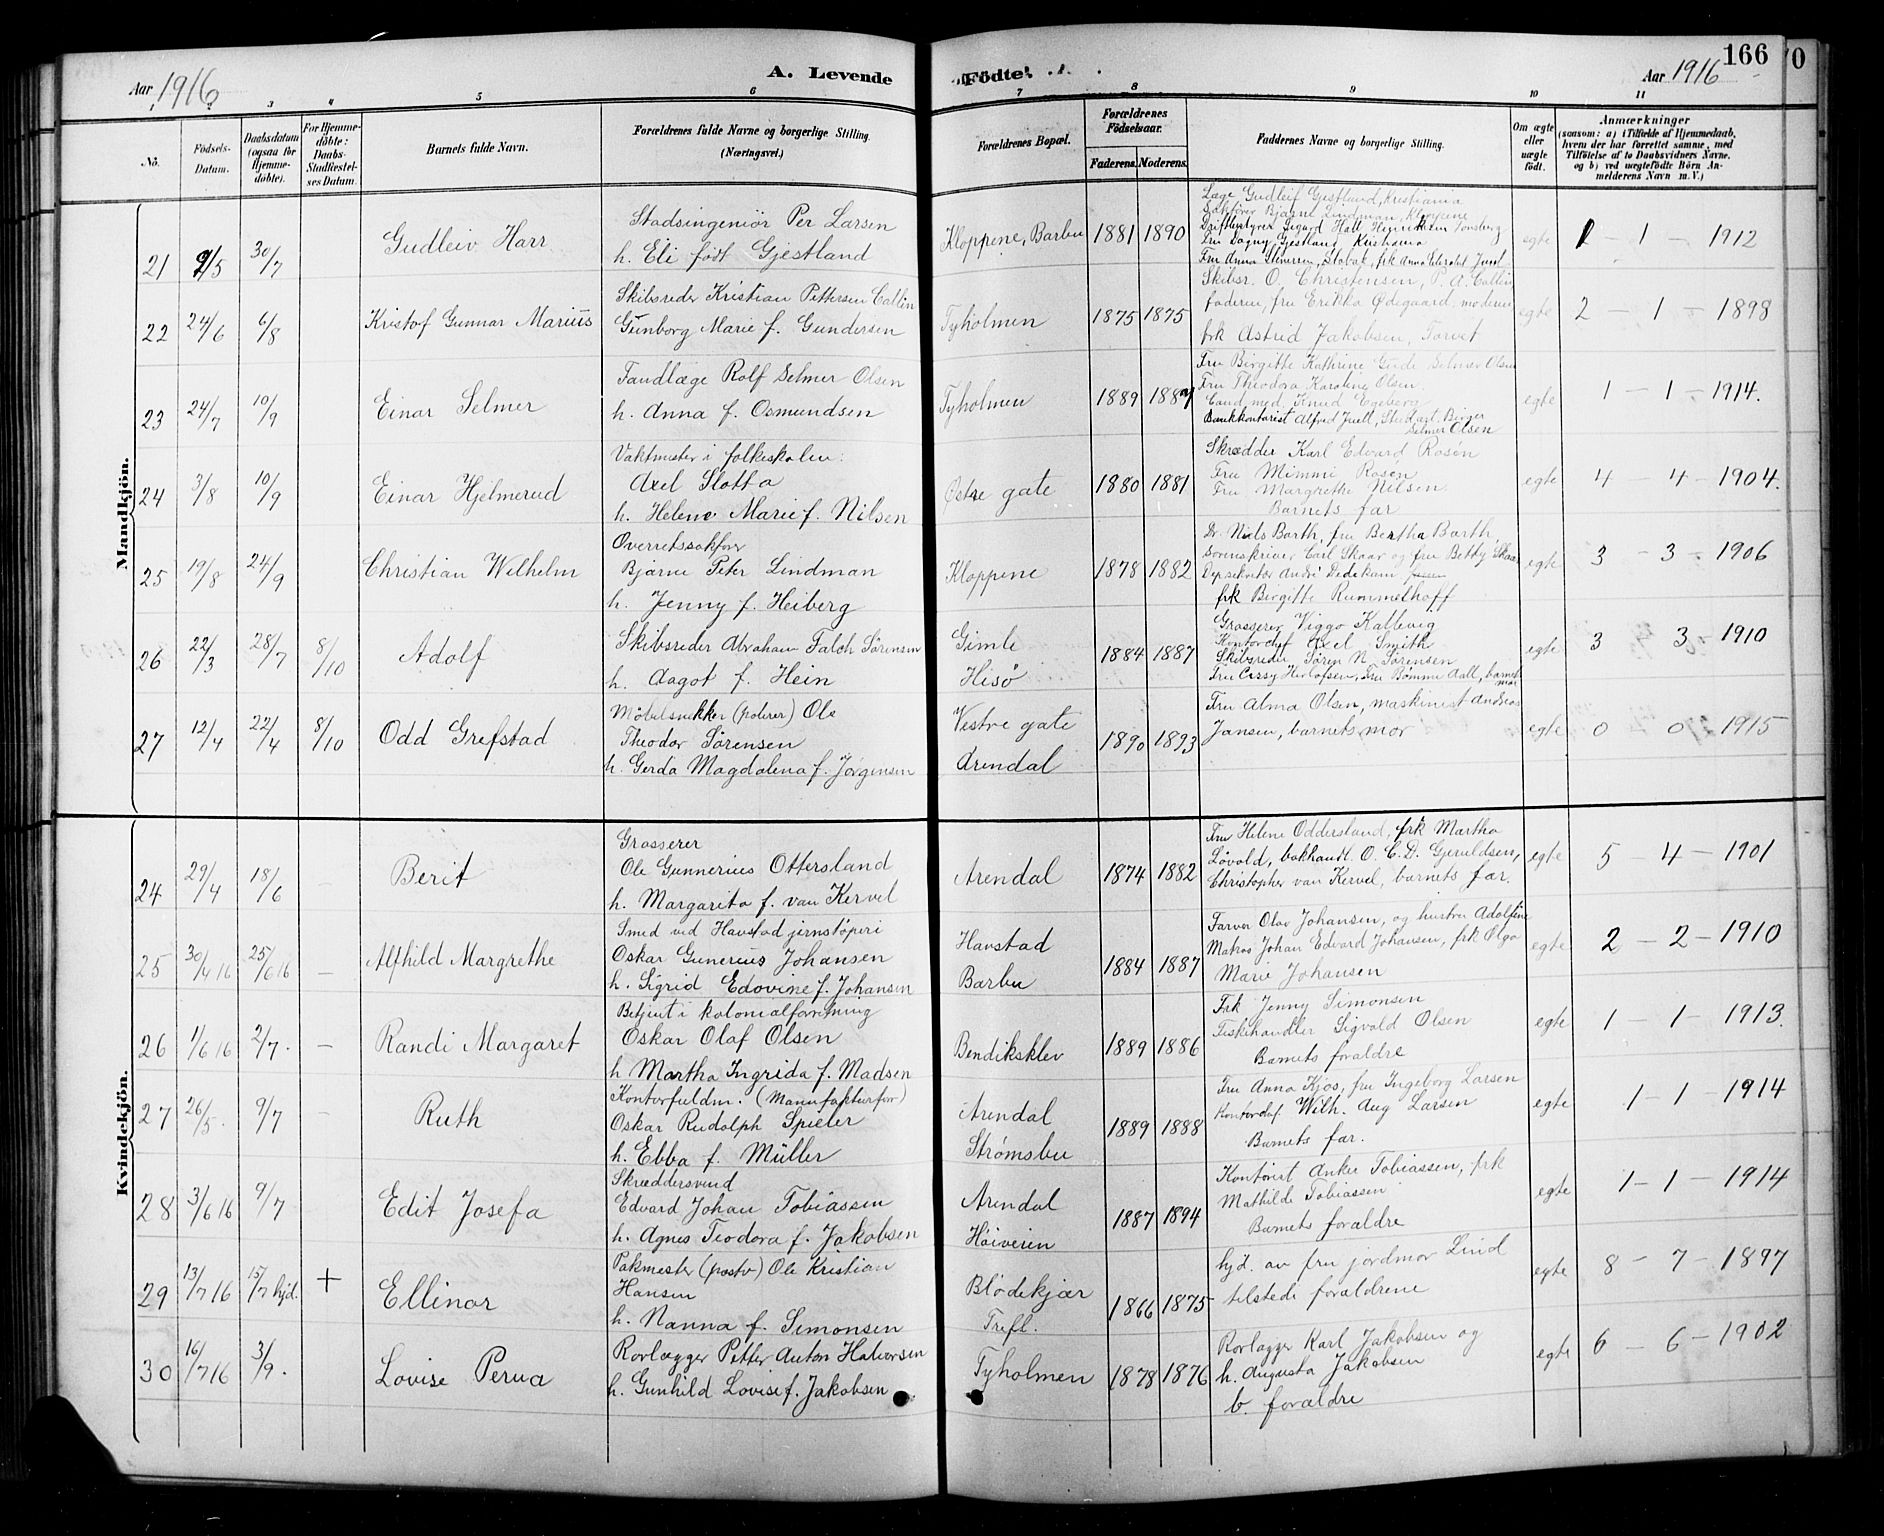 166
70
Aar 1916
A. Levende
Födte.
Aar 1916
3
4
5
6
7
8
9
10
11
No.
Födsels-Datum.
Daabsdatum (ogsaa for Hjemme-döbte).
For Hjemme-döbte: Daabs-Stadfæstel-ses Datum.
Barnets fulde Navn.
Forældrenes fulde Navne og borgerlige Stilling. (Næringsvei.)
Forældrenes Bopæl.
Forældrenes Födselsaar.
Faderens.
Moderens.
Faddernes Navne og borgerlige Stilling.
Om ægte eller uægte födt.
Anmærkninger
(saasom: a) i Tilfælde af Hjemmedaab,
hvem der har forrettet samme, med
Tilföielse af to Daabsvidners Navne.
og b) ved uægtefödte Börn An-
melderens Navn m. V.)
Mandkjön.
21 9/5 30/7 Gudleiv Harr
Stadsingeniör Per Larsen
h. Eli født Gjestland
Kloppene, Barbu 1881 1890
Læge Gudleif Gjestland, Kristiania
Sakfører Bjarne Lindman, Kloppene
Driftbestyrer Sigard Hall Henriksen Tønsberg
Fru Dagny Gjestland Kristiania
egte 1 - 1 - 1912
22 24/6 6/8 Kristof Gunnar Marius
Skibsreder Kristian Pettersen Callin
Gunborg Marie f. Gundersen
Tyholmen 1875 1875
Skibsr. O. Christensen, P. A. Callin
faderen, fru Erikka Ødegaard, moderen
frk Astrid Jakobsen, Torvet
egte 2 - 1 - 1898
23 24/7 10/9 Einar Selmer
Tandlæge Rolf Selmer Olsen
h. Anna f. Osmundsen
Tyholmen 1889
Fru Birgitte Kathrine Gurde Selmer Olsen
Fru Theodora Karoline Olsen
Cand. med. Knud Egeberg
Bankkontorist Alfred Juell, Stud. art. Birger
Selmer Olsen
egte 1 - 1 - 1914.
24 3/8 10/9 Einar Hjelmerud
Vaktmester i folkeskolen:
Axel Slotta
h. Helene Marie f. Nilsen
Østre gate 1880 1881
Skrædder Karl Edvard Rosen
Fru Mimmi Rosen
Fru Margrethe Nilsen
Barnets far
egte 4 - 4 - 1904.
25 19/8 24/9 Christian Wilhelm
Overretssakfører
Bjarne Peter Lindman
h. Jenny f. Heiberg
Kloppene 1878 1882
Dr. Niels Barth, fru Bertha Barth
Sorenskriver Carl Skaar og fru Betty Skaar
Depsekretær André Dedekam
frk Birgitte Rummelhoff
egte 3 - 3 - 1906
26 22/3 28/7 8/10 Adolf
Skibsreder Abraham Falch Sörensen
h. Aagot f. Hein
Gimle
Hisø 1884 1887
Grosserer Viggo Kallevig
Kontorchef Axel Smith
Skibsreder Sören N. Sörensen
Fru Cissy Herlofsen, Fru Bømme Aall, barnets
mor
egte 3 3 - 1910
27 12/4 22/4 8/10 Odd Grefstad
Møbelsnekker (polerer) Ole
Theodor Sörensen
h. Gerda Magdalena f. Jörgensen
Vestre gate
Arendal 1890 1893
Fru Alma Olsen, maskinist Andreas
Jansen, barnets mor
egte 0 0 - 1915
Kvindekjön.
24 29/4 18/6 - Berit
Grosserer
Ole Gunnerius Ottersland
h. Margarita f. van Kervel
Arendal 1874 1882
Fru Helene Oddersland, frk Martha
Løvold, bokhandl. O. C. D. Gjeruldsen,
Christopher van Kervel, barnets far.
egte 5 - 4 - 1901
25 30/4 16 25/6 16 - Alfhild Margrethe
Smed ved Havstad jernstøperi
Oskar Gunerius Johansen
h. Sigrid Edovine f. Johansen
Havstad
Barbu 1884 1887
Farver Olav Johansen, og hustru Adolfine
Matros Johan Edvard Johansen, frk Olga
Marie Johansen
egte 2 - 2 - 1910
26 1/6 16 2/7. - Randi Margaret
Betjent i kolonialforretning
Oskar Olaf Olsen
h. Martha Ingrida f. Madsen
Bendiksklev 1889 1886
Frk Jenny Simonsen
Fiskehandler Sigvald Olsen
Barnets foraldre
egte 1 - 1 - 1913.
27 26/5. 9/7 - Ruth
Kontorfuldm. (Manufakturforr)
Oskar Rudolph Spieler
h. Ebba f. Müller
Arendal
Strømsbu 1889 1888
Fru Anna Kjos, fru Ingeborg Larsen
Kontorchef Wilh. Aug Larsen
Barnets far.
egte 1 - 1 - 1914
28 3/6 16 9/7 Edit Josefa
Skræddersvend
Edvard Johan Tobiassen
h. Agnes Teodora f. Jakobsen
Arendal
Höiveien 1887 1894
Kontorist Anker Tobiassen, frk
Mathilde Tobiassen
Barnets foraldre
egte 1 - 1 - 1914
29 13/7 16 15/7 hjd. + Ellinor
Pakmester (postv) Ole Kristian
Hansen
h. Nanna f. Simonsen
Blødekjær
Trefl. 1866 1875
hjd. av fru jordmor Lind
tilstede foraldrene
egte 8 - 7 - 1897
30 16/7 16 3/9. Lovise Perua
Rorlægger Petter Anton Halvorsen
h. Gunhild Lovise f. Jakobsen
Tyholmen 1878 1876
Rorlægger Karl Jakobsen og
h. Augusta Jakobsen
b. forældre
egte 6 - 6 - 1902